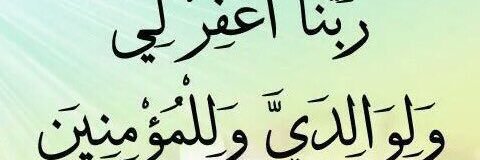 رَبَّنَا اغْفِرْ لِي
وَلِوَالِدَيَّ وَلِلْمُؤْمِنِينَ